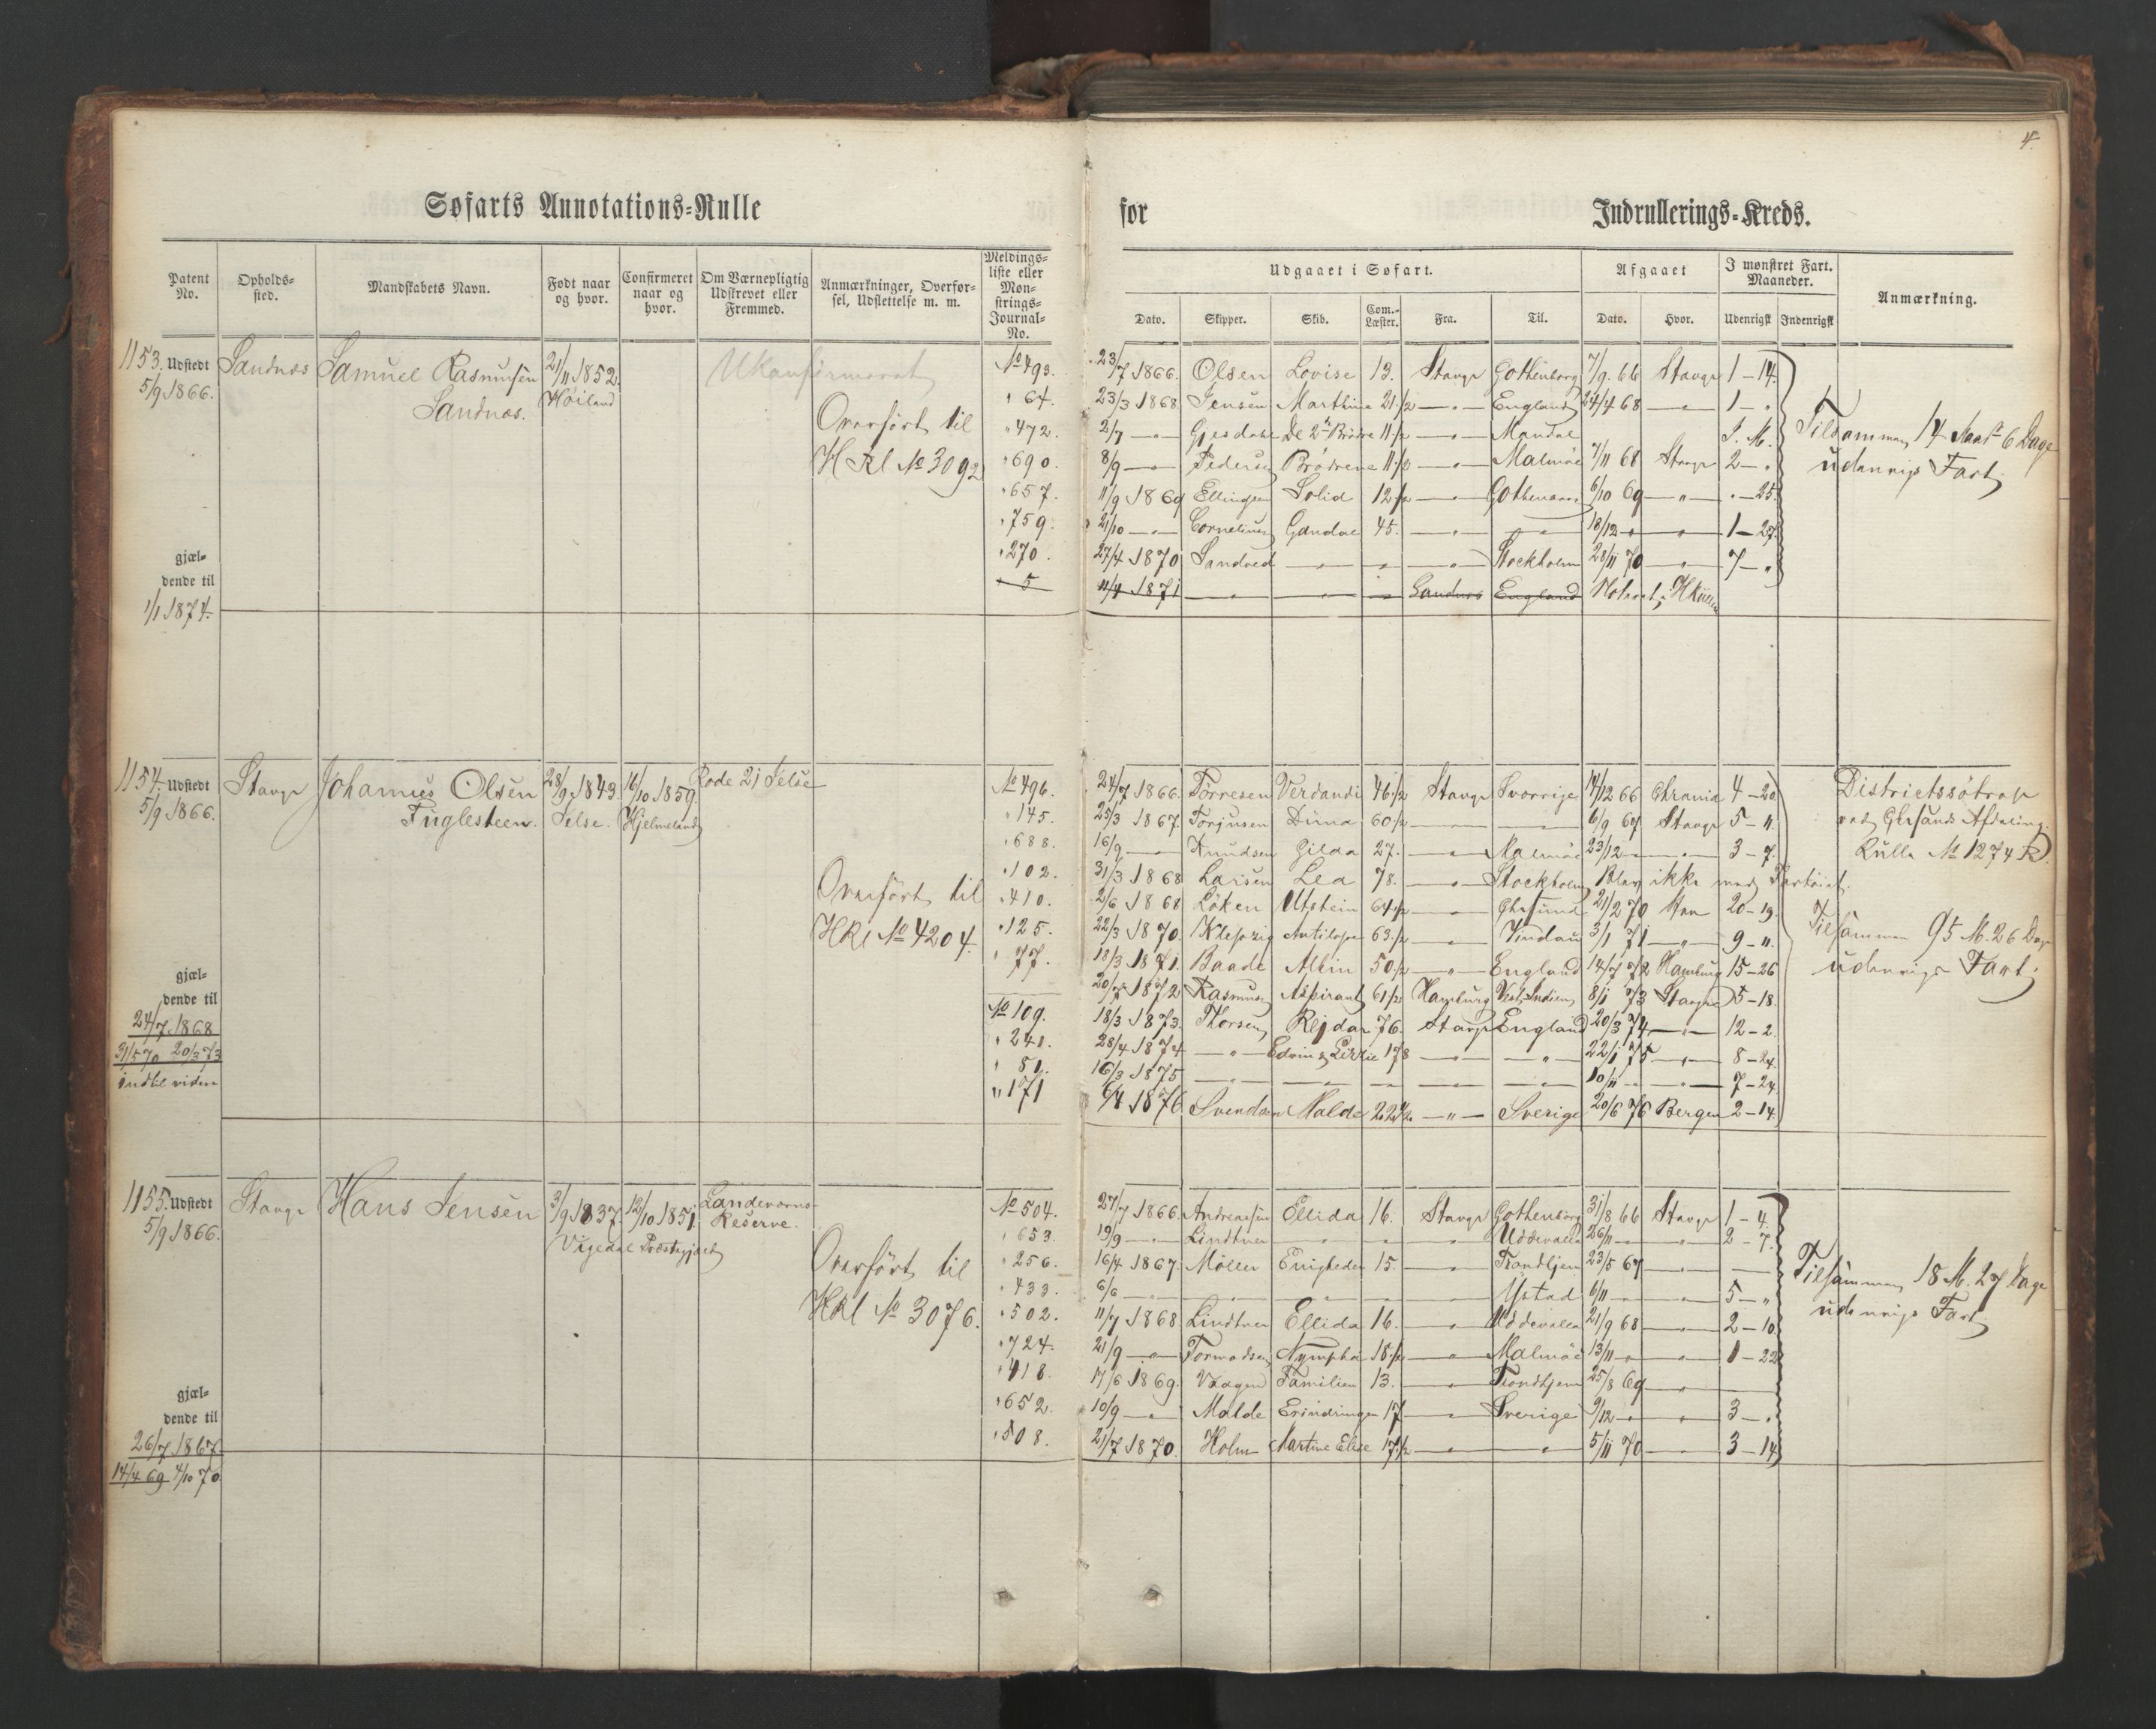 4.
Søfarts Annotations-Rulle for Indrullerings-Kreds.
Patent No. Opholds-sted. Mandskabets Navn. Født naar og hvor. Confirmeret naar og hvor. Om Værnepligtig Udskrevet eller Fremmed. Anmærkninger, Overfør-sel, Udslettelse m. m. Meldings-liste eller Møn-strings-Journal-No.
Udgaaet i Søfart. Afgaaet I mønstret Fart. Maaneder. Anmærkning.
Dato. Skipper. Skib. Com.-Læster. Fra. Til. Dato. Hvor. Udenrigsk Indenrigsk
1153. Udstedt 5/9 1866. Sandnæs Samuel Rasmusen Sandnæs. 21/11 1852. Höiland Ukonfirmeret
Overført til
HRl No 3092
gjæl-
dende til
1/1 1874.
No 493. 23/7 1866. Olsen Lovise 13. Stavgr Gothenborg 7/9. 66 Stavgr 1-14.
" 64. 23/3 1868 Jensen Marthine 21 1/2 —"— England 24/4 68 —"— 1-"
" 472. 2/7 —"— Gjesdahl De 2de Brödre 11 1/2 —"— Mandal I. M.
" 690. 8/9 —"— Pedersen Brödrene 11 1/2 —"— Malmöe 7/11 68 Stavgr 2-"
" 657. 11/9 1869 Ellingsen Solid 12 1/2 —"— 6/10 69 —"— "-25.
" 759. 21/10 —"— Cornelius Gandal 45. —"— —"— 18/12 " —"— 1-27.
" 270. 27/4 1870 Sandved —"— " —"— Stockholm 28/11 70 —"— 7-"
5 11/4 1871 —"— —"— — Sandnes England
Tilsammen 14 6 Dage
udenrigs Fart.
1154. Udstedt 5/9 1866. Stavgr Johannes Olsen Fuglesteen. 28/9 1843. Jelse. 16/10 1859. Hjelmeland Rode 21 Jelse
Overført til
HRl No 4204.
gjæl-
dende til
24/7 1868
31/5 70 20/3 73
indtil videre
No 496. 24/7 1866. Torresen Verdandi 46 1/2 Stavgr Sverrige 14/12 66 Chrania 4-20
" 145. 25/3 1867. Torjusen Dina 60 1/2 — — 6/9 67 Stavgr 5-11.
" 688. 16/9 —"— Knudsen Gilda 27. —"— Malmöe 23/12 —"— 3-7.
" 102. 31/3 1868 Larsen Lea 78. —"— Stockholm Blev ikke med Fartöiet.
" 410. 2/6 1868 Löken Utstein 64 1/2 —"— Chrsund 21/2 70 20-19.
" 125. 22/3 1870. Antilope 63 1/2 —"— Vindau 3/1 71 —"— 9-11.
" 77. 18/3 1871. Baade Albin 50 1/2 —"— England 14/7 72 Hamburg 15-26
20/7 1872 Rasmusen Aspirant 61 1/2 Hamburg Vest Indien 8/1 73 Stavgr 5-18.
No 109. 18/3 1873. Thorsen Rejdar 76. Stavgr England 20/3 74 —"— 12-2.
" 241. 28/4 1874 —"— Edvin & Lizzie 178 —"— —"— 22/1 75 —"— 8-24.
" 81. 16/3 1875 —"— —"— — —"— —"— 10/11 " —"— 7-24.
" 171 6/4 1876 Svendsen Malde 22 1/2 —"— Sverige 20/6 76 Bergen 2-14.
Districtssötrop
ved Chrsands Afdeling.
Rulle No 1274
Tilsammen 95 M. 26 Dage
udenrigs Fart.
1155. Udstedt 5/9 1866. Stavgr Hans Jensen 3/9 1837. 12/10 1851. Vigedal Præstegjæld Landeværns-Reserve.
Overført til
HRl No 3076.
gjæl-
dende til
26/7 1867
14/4 69 4/10 70
No 504. 27/7 1866. Andreassen Ellida 16. Stavgr Gothenborg 31/8 66 Stavgr 1-4.
" 653. 19/9 —"— Lindtner —"— " —"— Uddevalla 26/11 —"— 2-7.
" 256. 16/4 1867. Möller Enigheden 15. —"— Trondhjem 23/5 67 —"— —
" 433. 6/6 —"— —"— —"— " —"— Ystad 6/11 " —"— 5-"
" 502. 11/7 1868. Lindtner Ellida 16. —"— Uddevalla 21/9 68 —"— 2-10.
" 724. 21/9 —"— Tormodsen Nympha 18 1/2 —"— Malmöe 13/11 " —"— 1-22
" 418. 17/6 1869. Vaagen Familien 13. —"— Trondhjem 25/8 69 —"— —
" 652. 10/9 —"— Malde Erindringen 17 —"— Sverige 9/12 " —"— 3-"
" 508. 21/7 1870. Holm Martine Elise 17 1/2 —"— —"— 5/11 70 —"— 3-14
Tilsammen 18 M. 27 Dage
udenrigs Fart.